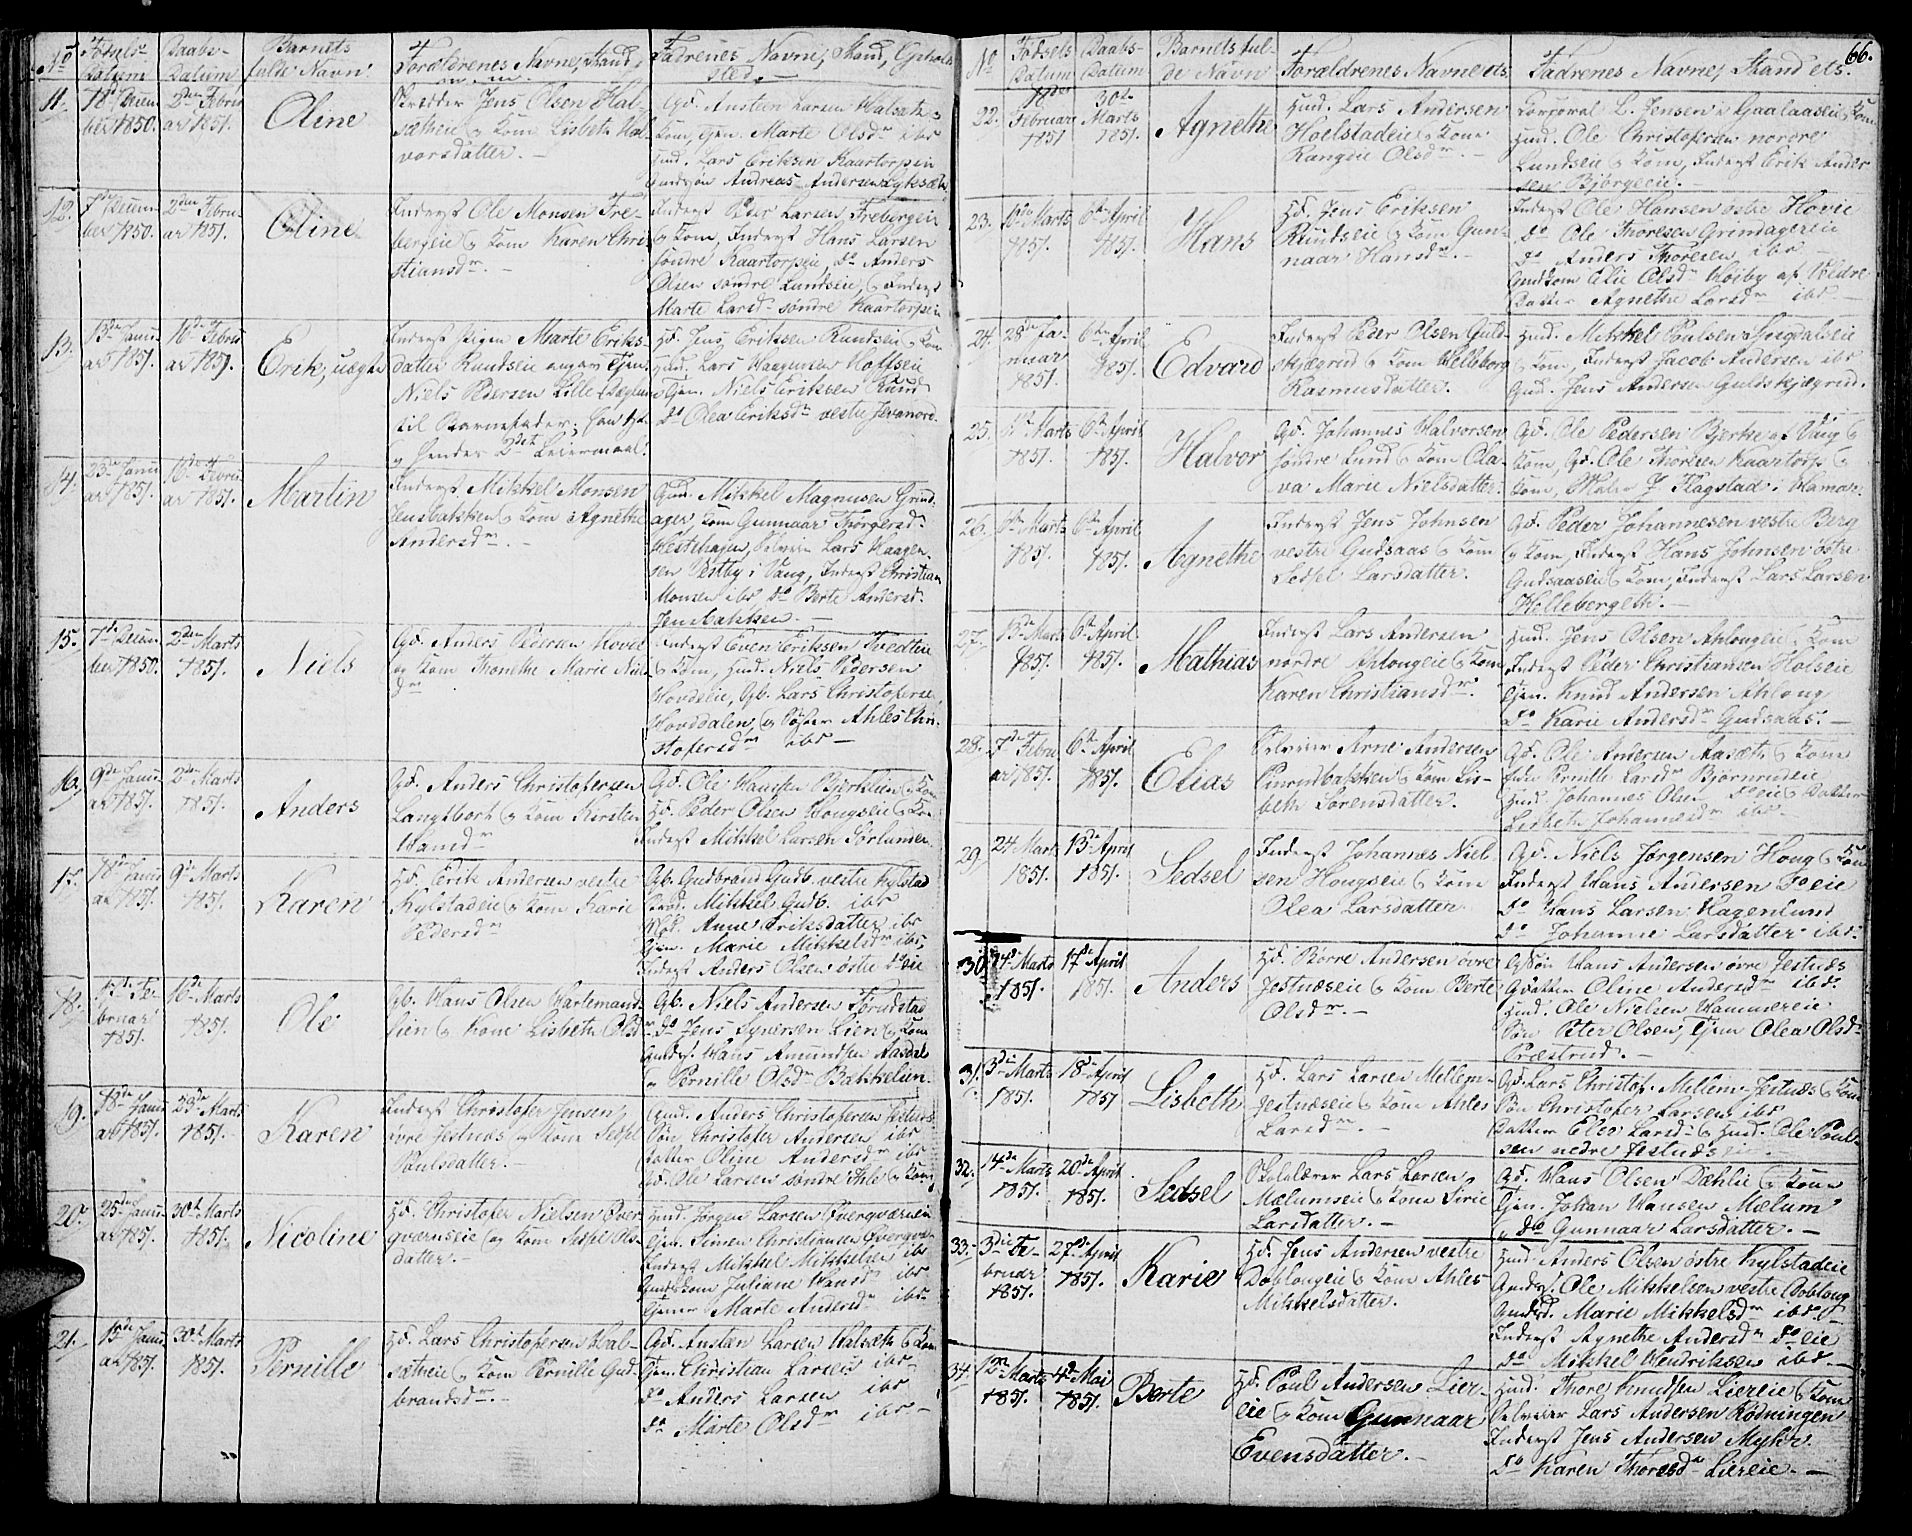 No
Fødsels Datum
Daabs-Datum
Barnets fulde Navn
Forældrenes Navne, Stand
Fadrenes Navne, Stand, Opholds
sted.
11.
ber 1850.
2den Febru
ar 1851.
Oline
Skredder Jens Olsen Hal-
sætheie og Kone Lisbeth Hal
vorsdatter. –
Gd. Austen Larsen Halsæth og
Kone, Tjen. Marte Olsdr ibd
Huud. Lars Eriksen Kaartorpeie
Andreas Andersen
12.
7de Decem
ber 1850.
2den Febru-
ar 1851.
Oline
Inderst Ole Monsen Fre-
bergeie og Kone Karen Chri
stiansdr. –
Inderst Peder Larsen, Frebergeie
og Kone, Inderst Hans Larsen
søndre Kaartorpeie, do Anders
Olsen søndre Lundseie, og Inderst
Marte Larsd. søndre Kaartorpeie
13.
13de Janu
ar 1851.
16de Febru
ar 1851.
Erik, uægte
Inderst Pigen Marte Eriks-
datter Rundseie angav Tjen.
Niels Pedersen Lille
til Barnefader; hans 1ste
og hendes 2det Leiermaal.
Hd. Jens Eriksen Rundseie og Kone
Huud. Lars Haagensen Hoffseie
Tjen. Niels Eriksen Ruud
do Olea Eriksdr vestre Jevanord.
14.
23de Janu
ar 1851.
16de Febru
ar 1851.
Martin
Inderst Mikkel Monsen
Jensbakken og Kone Agnethe
Andersdr. –
Huud. Mikkel Magnusen Grind
ager, Kone Gunnaar Thorgersd.
Westehagen, Selveier Lars Haagen
sen Vestby i Vang, Inderst Christian
Monsen ibd do Berte Andersd.
Jensbakken. –
15.
7de Decem
ber 1850.
2den Marts
1851.
Niels
Gd. Anders Pedersen Hovde
og Kone Thonethe Marie Niels
dr
Inderst Even Eriksen Tvedteie
og Kone, Huud. Niels Pedersen
Hovdeie, Gb. Lars Christofersen
Hovddalen, og Søster Ahles Chri-
stofersdr ibd –
16.
9de Janu
ar 1851.
2den Marts
1851.
Anders
Gd. Anders Christofersen
Langtbort og Kone Kirsten
Hansdr
Gd. Ole Hansen Bjerklien og Kone
Hd. Peder Olsen Hougseie og Kone
Inderst Mikkel Larsen Sørlumen
17.
18de Janu
ar 1851.
9de Marts
1851.
Karen
Hd. Erik Andersen vestre
Kylstadeie og Kone Karie
Pedersdr
Gb. Gudbrand Gudb. vestre Kylstad
Brod. Mikkel Gudb. ibd
Mod. Anne Eriksdatter ibd
Tjen. Marie Mikkelsdr ibd,
Inderst Anders Olsen østre do eie
18.
bruar
1851.
16de Marts
1851.
Ole
Gb. Hans Olsen Hartemand
lien og Kone Lisbeth Olsdr
Gb. Niels Andersen Tørudstad
do Jens Syversen Lien og Kone
Hans Amundsen Aasdal
og Pernille Olsdr Bakkelien.
19.
18de Janu
ar 1851.
23de Marts
1851.
Karen
Inderst Christofer Jensen
øvre Jestnæs og Kone Sedsel
Poulsdatter. –
Gmd. Anders Christofersen Jestnæs
Søn Christofer Andersen ibd
Datter Oline Andersdr ibd
Gd. Ole Larsen søndre Ihle og Kone
20.
25de Janu
ar 1851.
30te Marts
1851.
Nicoline
Hd. Christofer Nielsen Over
qværnseie og Kone Sedsel Ols-
datter.
Huud. Jørgen Larsen Overqværneie
Tjen. Simen Christiansen Overqve.
Inderst Mikkel Mikkelsen ibd
Juliane Hansd. ibd
Tjener Marte Andersdr ibd
21.
15de Janu
ar 1851.
30te Marts
1851.
Pernille
Hd. Lars Christofersen Hal-
sætheie og Kone Pernille Gud-
brandsdr. –
Gd. Austen Larsen Halsæth og Kone
Tjen. Christian Larsen ibd
do Anders Larsen ibd
do Marte Olsdr ibd –
66.
No
Fødsels Datum
Daabs-Datum
Barnets ful-
de Navn
Forældrenes Navne etc.
Fadrenes Navne, Stand etc.
22.
Februar
1851
30te
Marts
1851.
Agnethe
Huud. Lars Andersen
Hoelstadeie og Kone
Rangdie Olsdr. –
Corporal L. Jensen i Gaalaaseie og Kone
Huud. Ole Christofersen nordre
Lundseie og Kone, Inderst Erik Ander
sen Bjørgeeie. –
23.
10de Marts
1851.
6te April
1851.
Hans
Hd. Jens Eriksen
Ruudseie og Kone Gun-
naar Hansdr.
Inderst Ole Hansen østre Hovie
do Ole Thoresen Grindagereie
do Anders Thoresen ibd
Elie Olsdr Høiby af Veldre
Datter Agnethe Larsdr ibd. –
24.
28de Ja-
nuar
1851.
6te April
1851.
Edvard
Inderst Peder Olsen Guld-
skjægrud og Kone Velleborg
Rasmusdatter.
Huud. Mikkel Poulsen Skogdaleie
og Kone, Inderst Jacob Andersen ibd
Huud. Jens Andersen Guldskjægrud.
25.
Marts
1851.
6te April
1851.
Halvor
Gd. Johannes Halvorsen
søndre Lund og Kone Ola-
va Marie Nielsdatter.
Gd. Ole Pedersen Bjerke af Vang og
Kone, Gd. Ole Thoresen Kaartorp og
Kone, Maler J. Flagstad i Hamar.
26.
Marts
1851.
6te April
1851.
Agnethe
Inderst Jens Johnsen
vestre Gudsaas og Kone
Sedsel Larsdatter.
Gd. Peder Johannesen vestre Berg
og Kone, Inderst Hans Johnsen østre
Gudsaaseie og Kone, Inderst Lars Larsen
Hollebergeth. –
27.
13de Marts
1851.
6te April
1851.
Mathias
Inderst Lars Andersen
nordre Ahlougeie og Kone
Karen Christiansdr.
Huud. Jens Olsen Ahlougeie og Kone
Inderst Peder Christiansen Holseie
Tjen. Knud Andersen Ahloug
do Karie Andersdr Gudsaas. –
28.
7de Febru
ar 1851.
6te April
1851.
Elias
Selveier Arne Andersen
Purudbakken og Kone Lis-
beth Sørensdatter.
Gd. Ole Andersen Aasæth og Kone
Pernille Larsdr Bjørnrudeie
Huud. Johannes Olsen do eie og Datter
Lisbeth Johannesdr ibd. –
29.
24 Marts
1851.
13de April
1851.
Sedsel
Inderst Johannes Niel-
sen Hougseie og Kone
Olea Larsdatter
Gd. Niels Jørgensen Houg og Kone
Inderst Hans Andersen do eie
do Hans Larsen Hagenlund
do Johanne Larsdatter ibd.
30.
14de Marts
1851.
17de April
1851.
Anders
Hd. Børre Andersen øvre
Jestnæseie og Kone Berte
Olsdr. –
Hans Andersen øvre Jestnæs
Gdatter Oline Andersdr ibd.
Huud. Ole Nielsen Hammereie
Søn Peter Olsen, Tjen Olea Olsdr
Præstrud. –
31.
3die Marts
1851.
18de April
1851
Lisbeth
Hd. Lars Larsen Mellem-
Jestnæseie og Kone Ahles
Larsdr. –
Gd. Lars Christof. Mellem-Jestnæs og Kone
Søn Christofer Larsen ibd
Datter Eleo Larsd. og Huud. Ole Poul-
sen nedre Jestnæseie.
32.
14de Marts
1851.
20de April
1851.
Sedsel
Skolelærer Lars Larsen
Mælumseie og Kone Sirie
Larsdatter. –
Gd. Hans Olsen Dæhlie og Kone
Tjen. Johan Hansen Mælum
do Gunnaar Larsdatter. –
33.
3die Fe
bruar
1851.
27de April
1851.
Karie
Hd. Jens Andersen vestre
Dobloug­eie og Kone Ahles
Mikkelsdatter.
Huud. Anders Olsen østre Kylstadeie
Ole Mikkelsen vestre Dobloug
Marie Mikkelsdr ibd –
Inderst Agnethe Andersdr do eie
do Mikkel Hendriksen ibd. –
34.
12te Marts
1851.
4de Mai
1851.
Berte
Hd. Poul Andersen Lier-
eie og Kone Gunnaar
Evensdatter. –
Huud. Thore Knudsen Liereie og Kone
Selveier Lars Andersen Rødningen
Inderst Jens Andersen Myhr.
do Karen Thoresdr Liereie. –